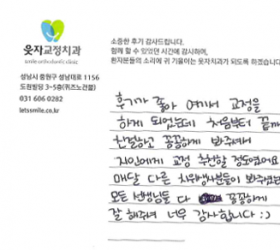 웃자교정치과
smile orthodontic clinic
성남시 중원구 성남대로 1156
도현빌딩 3~5층(퀴즈노건물)
031 606 0282
letssmile.co.kr
소중한 후기 감사드립니다.
함께 할 수 있었던 시간에 감사하며,
환자분들의 소리에 귀 기울이는 웃자치과가 되도록 하겠습니다
후기가 좋아 여기서 교정을
하게 되었는데 처음부터 끝까
친절하고 꼼꼼하게 봐주셔서
지인에게 교정 추천할 정도였어요
매달 다른 치위생사분들이 봐주셨는데
모든 선생님들 다 꼼꼼하게
잘 해주셔 너무 감사합니다 :)